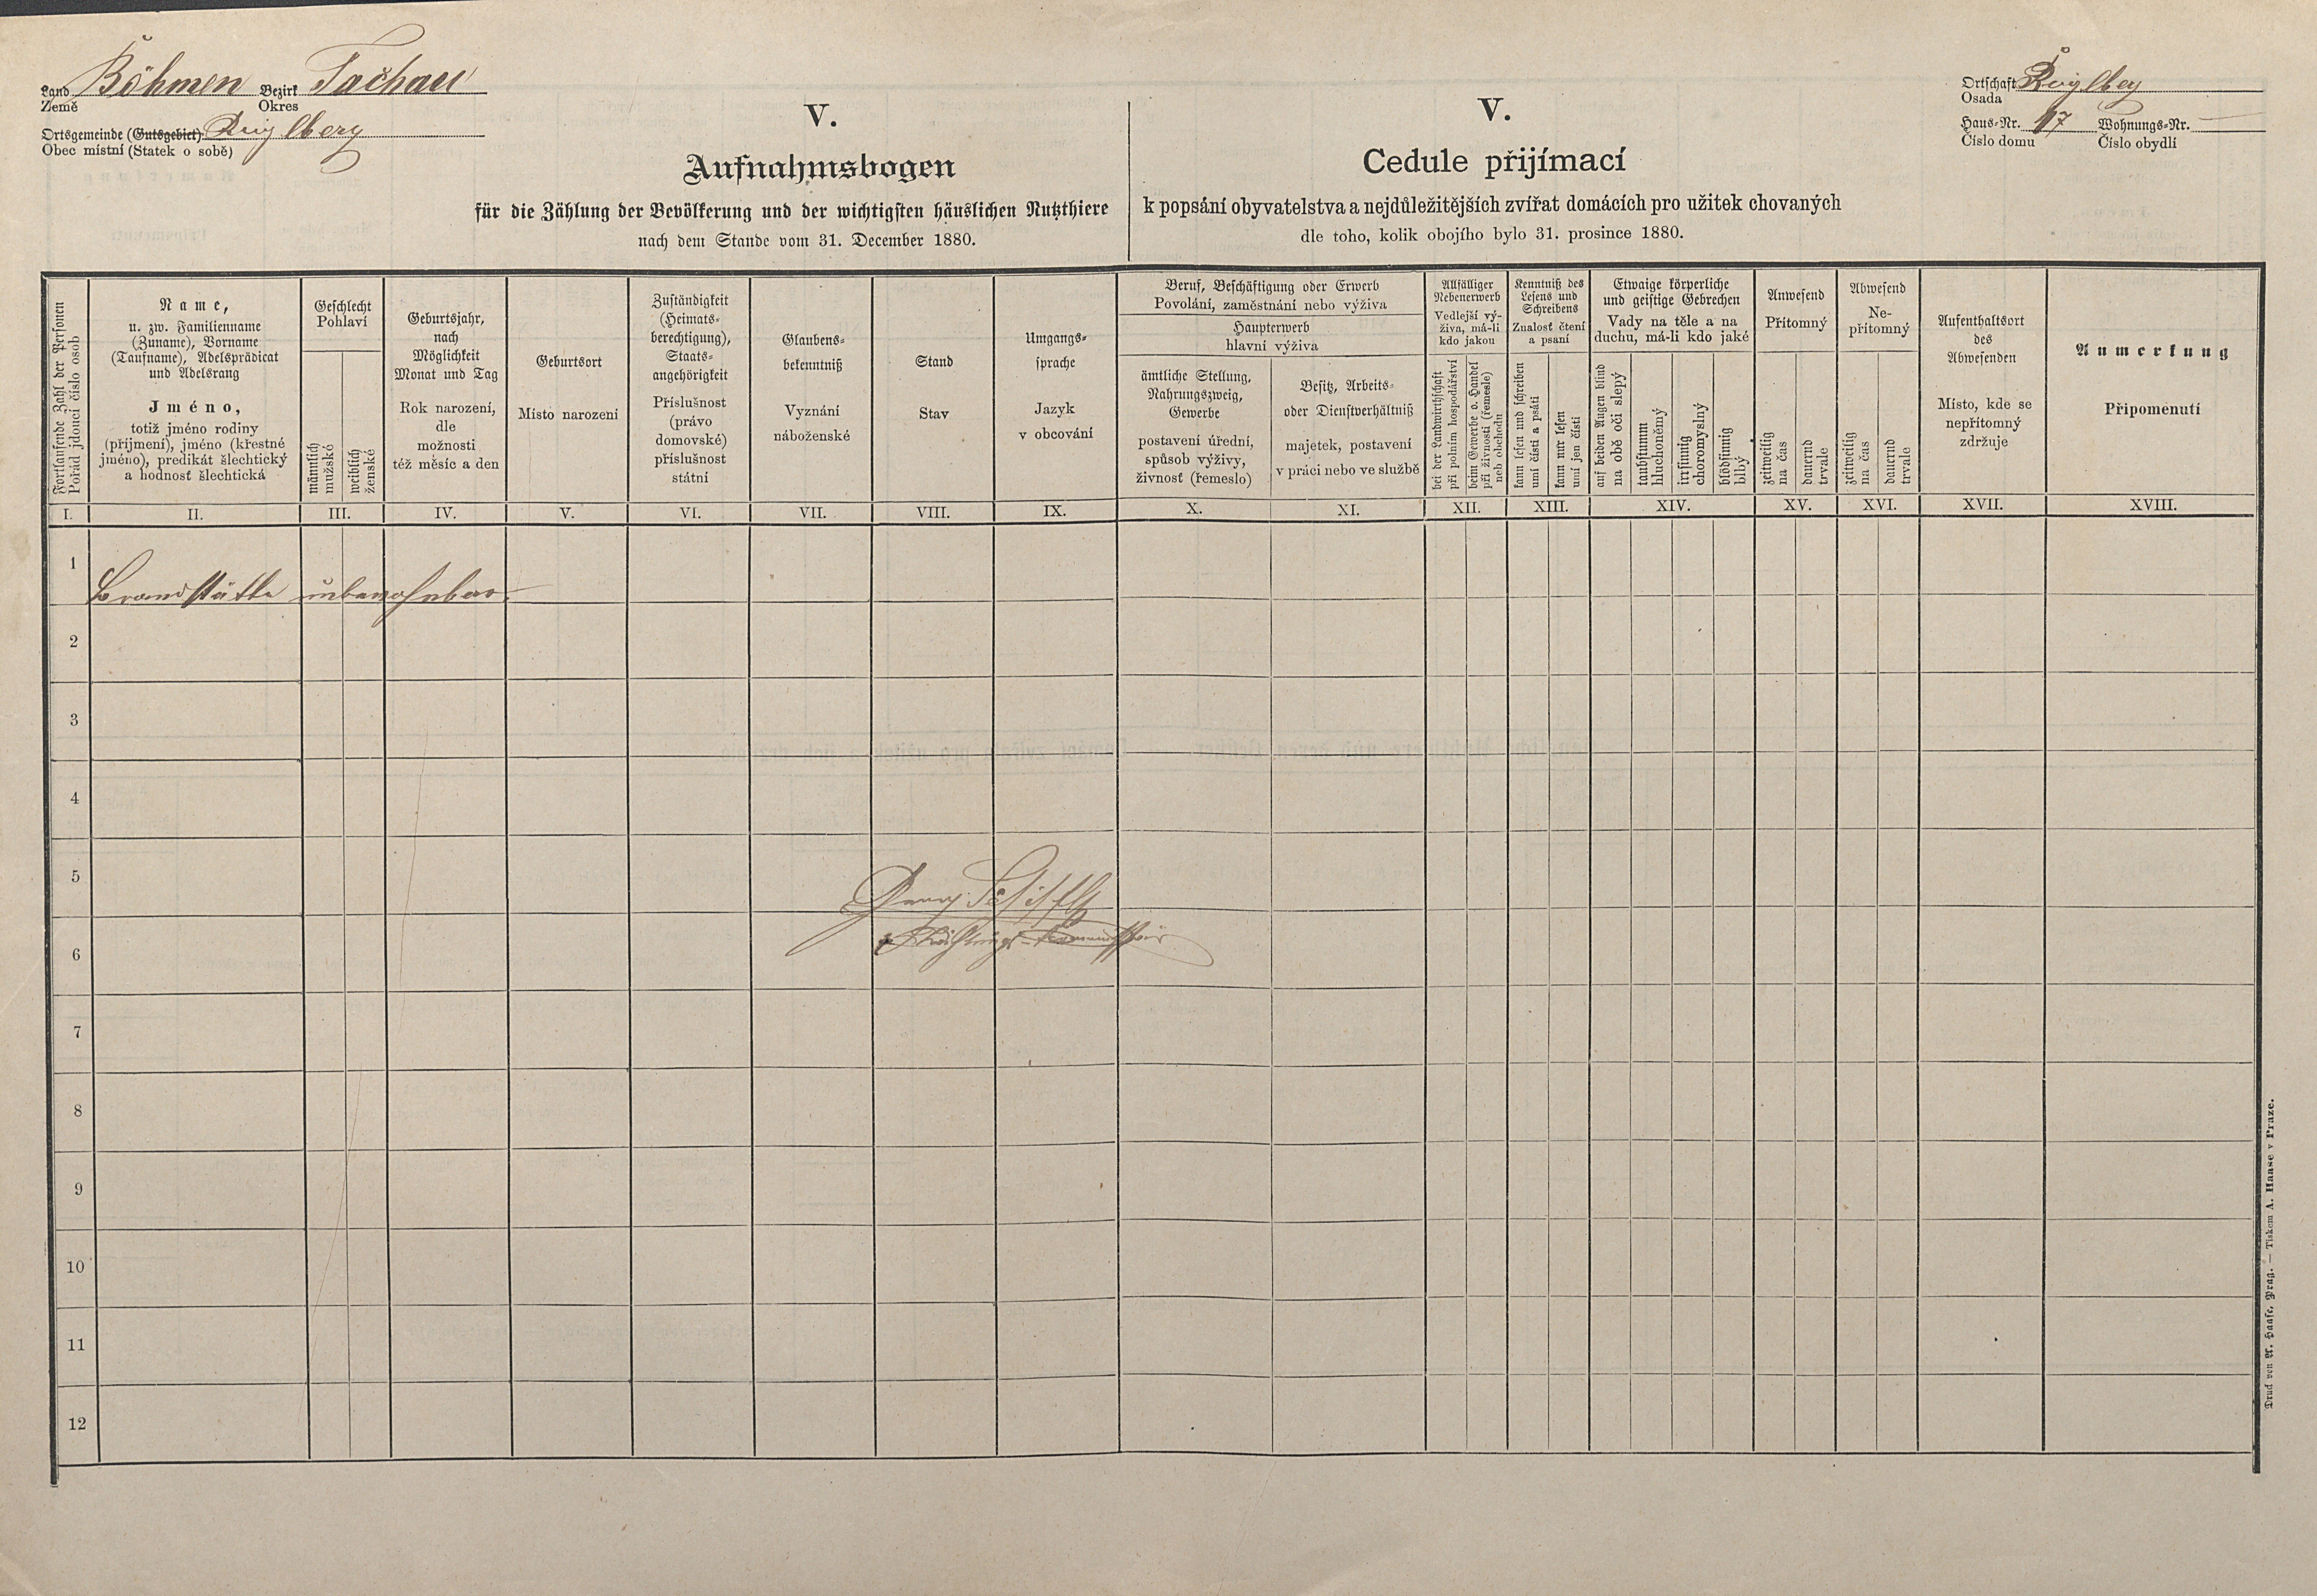 Land Böhmen Bezirk Tachau
Země Okres
Ortsgemeinde (Gutsgebiet)
Obec místní (Statek o sobě)
V.
Aufnahmsbogen
für die Zählung der Bevölkerung und der wichtigsten häuslichen Nutzthiere
nach dem Stande vom 31. December 1880.
V.
Cedule přijímací
k popsání obyvatelstva a nejdůležitějších zvířat domácích pro užitek chovaných
dle toho, kolik obojího bylo 31. prosince 1880.
Ortschaft
Osada
Haus-Nr. 17 Wohnungs-Nr. —
Číslo domu Číslo obydlí
Fortlaufende Zahl der Personen
Pořád jdoucí číslo osob
Name,
u. zw. Familienname
(Zuname), Vorname
(Taufname), Adelsprädicat
und Adelsrang
Jméno,
totiž jméno rodiny
(příjmení), jméno (křestné
jméno), predikát šlechtický
a hodnost šlechtická
Geschlecht
Pohlaví
männlich
mužské
weiblich
ženské
Geburtsjahr,
nach
Möglichkeit
Monat und Tag
Rok narození,
dle
možnosti
též měsíc a den
Geburtsort
Místo narození
Zuständigkeit
(Heimats-
berechtigung),
Staats-
angehörigkeit
Příslušnost
(právo
domovské)
příslušnost
státní
Glaubens-
bekenntniß
Vyznání
náboženské
Stand
Stav
Umgangs-
sprache
Jazyk
v obcování
Beruf, Beschäftigung oder Erwerb
Povolání, zaměstnání nebo výživa
Haupterwerb
hlavní výživa
ämtliche Stellung,
Nahrungszweig,
Gewerbe
postavení úřední,
způsob výživy,
živnosť (řemeslo)
Besitz, Arbeits-
oder Dienstverhältniß
majetek, postavení
v práci nebo ve službě
Allfälliger
Nebenerwerb
Vedlejší vý-
živa, má-li
kdo jakou
bei der Landwirthschaft
při polním hospodářství
beim Gewerbe o. Handel
při živnosti (řemesle)
neb obchodu
Kenntniß des
Lesens und
Schreibens
Znalosť čtení
a psaní
kann lesen und schreiben
umí čísti a psáti
kann nur lesen
umí jen čísti
Etwaige körperliche
und geistige Gebrechen
Vady na těle a na
duchu, má-li kdo jaké
auf beiden Augen blind
na obě oči slepý
taubstumm
hluchoněmý
irrsinnig
choromyslný
blödsinnig
blbý
Anwesend
Přítomný
zeitweilig
na čas
dauernd
trvale
Abwesend
Ne-
přítomný
zeitweilig
na čas
dauernd
trvale
Aufenthaltsort
des
Abwesenden
Místo, kde se
nepřítomný
zdržuje
Anmerkung
Připomenutí
I. II. III. IV. V. VI. VII. VIII. IX. X. XI. XII. XIII. XIV. XV. XVI. XVII. XVIII.
1
Brandstätte unbewohnbar.
2
3
4
5
Georg
6
Zählungs-Kommissär
7
8
9
10
11
12
Druck von A. Haase, Prag. — Tiskem A. Haase v Praze.